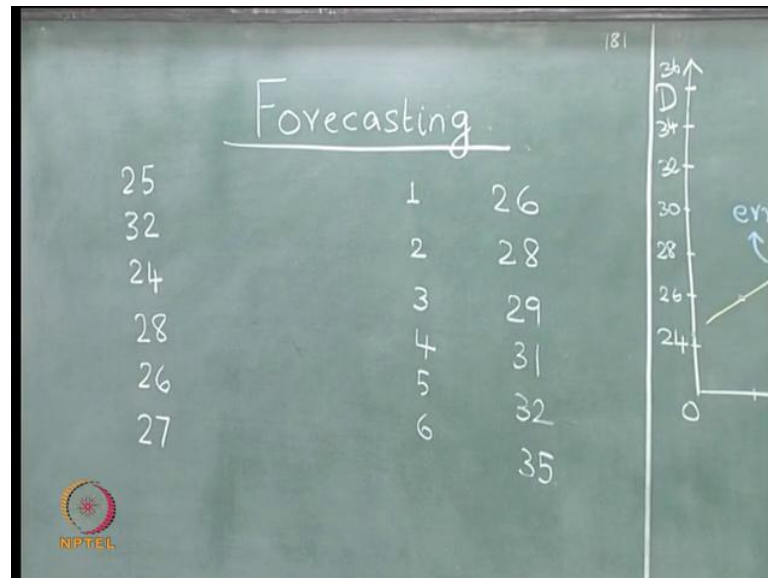 181
Forecasting
25
32
24
28
26
27
1 26
2 28
3 29
4 31
5 32
6 35
36
D
34
32
30
28
26
24
0
err
NPTEL